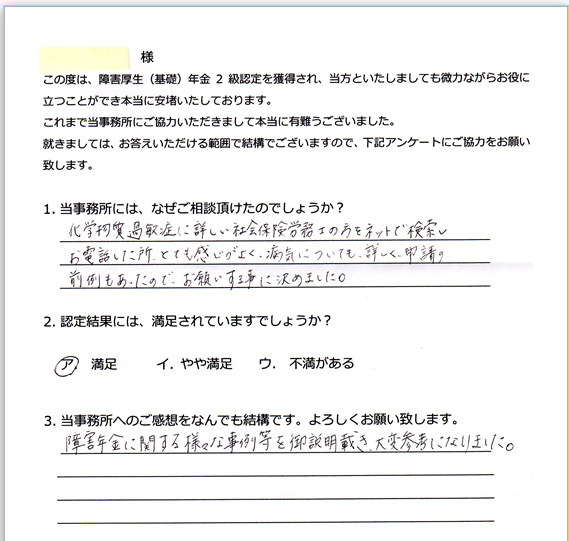 様
この度は、障害厚生（基礎）年金 2 級認定を獲得され、当方といたしましても微力ながらお役に
立つことができ本当に安堵いたしております。
これまで当事務所にご協力いただきまして本当に有難うございました。
就きましては、お答えいただける範囲で結構でございますので、下記アンケートにご協力をお願い
致します。
1. 当事務所には、なぜご相談頂けたのでしょうか？
化学物質過敏症に詳しい社会保険労務士の方をネットで検索し
お電話した所、とても感じがよく、病気についても、詳しく、申請の
前例もあったので、お願いする事に決めました。
2. 認定結果には、満足されていますでしょうか？
ア. 満足 イ. やや満足 ウ. 不満がある
3. 当事務所へのご感想をなんでも結構です。よろしくお願い致します。
障害年金に関する様々な事例等を御説明載き、大変参考になりました。